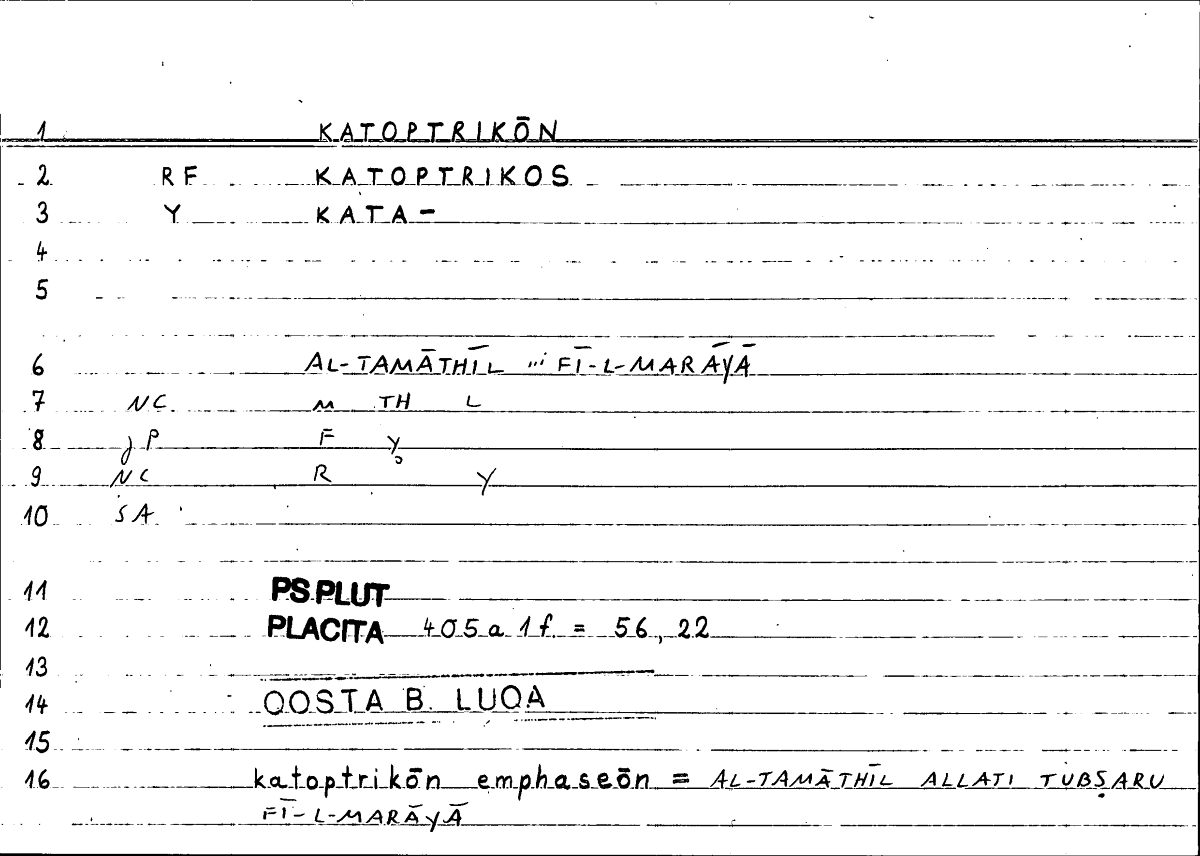 1 KATOPTRIKŌN
2 RF KATOPTRIKOS
3 Y KATA-
4
5
6 AL-TAMĀTHĪL ... FĪ-L-MARĀYĀ
7 NC M TH L
8 JP F Y
9 NC R Y
10 SA
11 PS.PLUT
12 PLACITA 405a 1f. = 56, 22
13
14 QOSTA B. LUQA
15
16 katoptrikōn emphaseōn = AL-TAMĀTHĪL ALLATI TUBṢARU
FĪ-L-MARĀYĀ